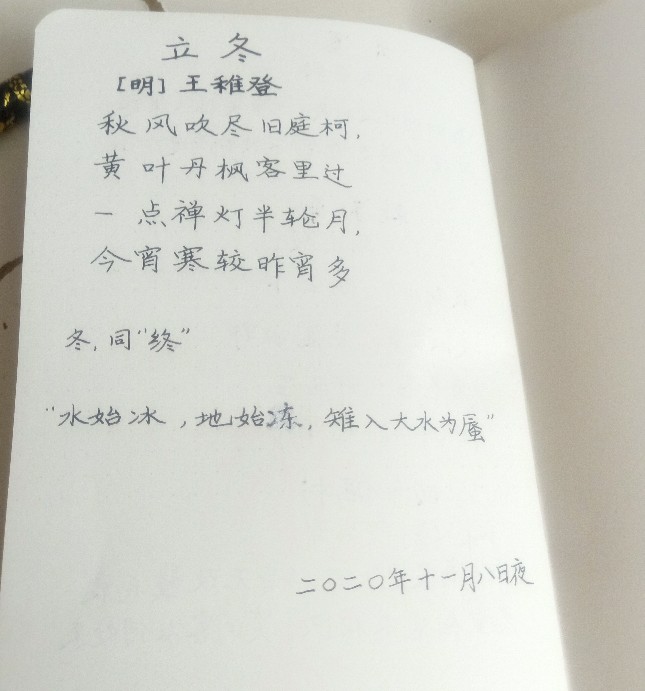 立冬
[明]王稚登
秋风吹尽旧庭柯,
黄叶丹枫客里过
一点禅灯半轮月,
今宵寒较昨宵多
冬,同“终”
“水始冰,地始冻,雉入大水为蜃”
二〇二〇年十一月八日夜